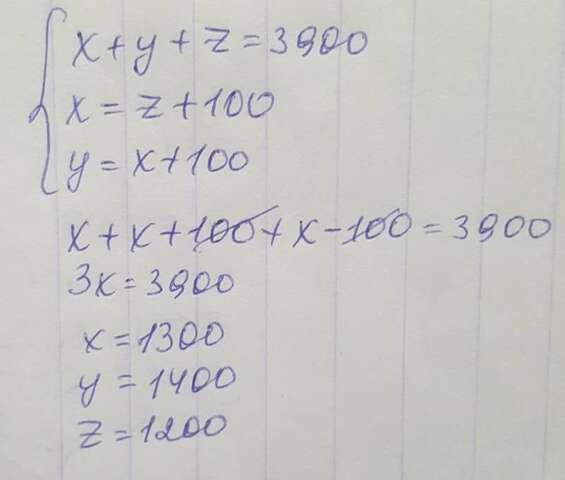 x+y+z=3900
x=z+100
y=x+100
x+x+100+x-100=3900
3x=3900
x=1300
y=1400
z=1200